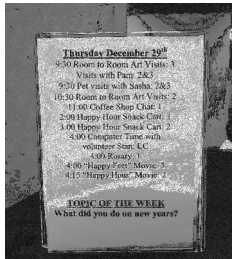 Thursday December 29th
9:30 Room to Room Art Visits: 3
Visits with Pam: 2&3
9:30 Pet visits with Sasha: 2&3
10:30 Room to Room Art Visits: 2
11:00 Coffee Shop Chat: 1
2:00 Happy Hour Snack Cart: 1
3:00 Happy Hour Snack Cart: 2
4:00 Computer Time with
volunteer Stan: LC
4:00 Rosary: 1
4:00 "Happy Feet" Movie: 3
4:15 "Happy Hour" Movie: 2
TOPIC OF THE WEEK
What did you do on new years?